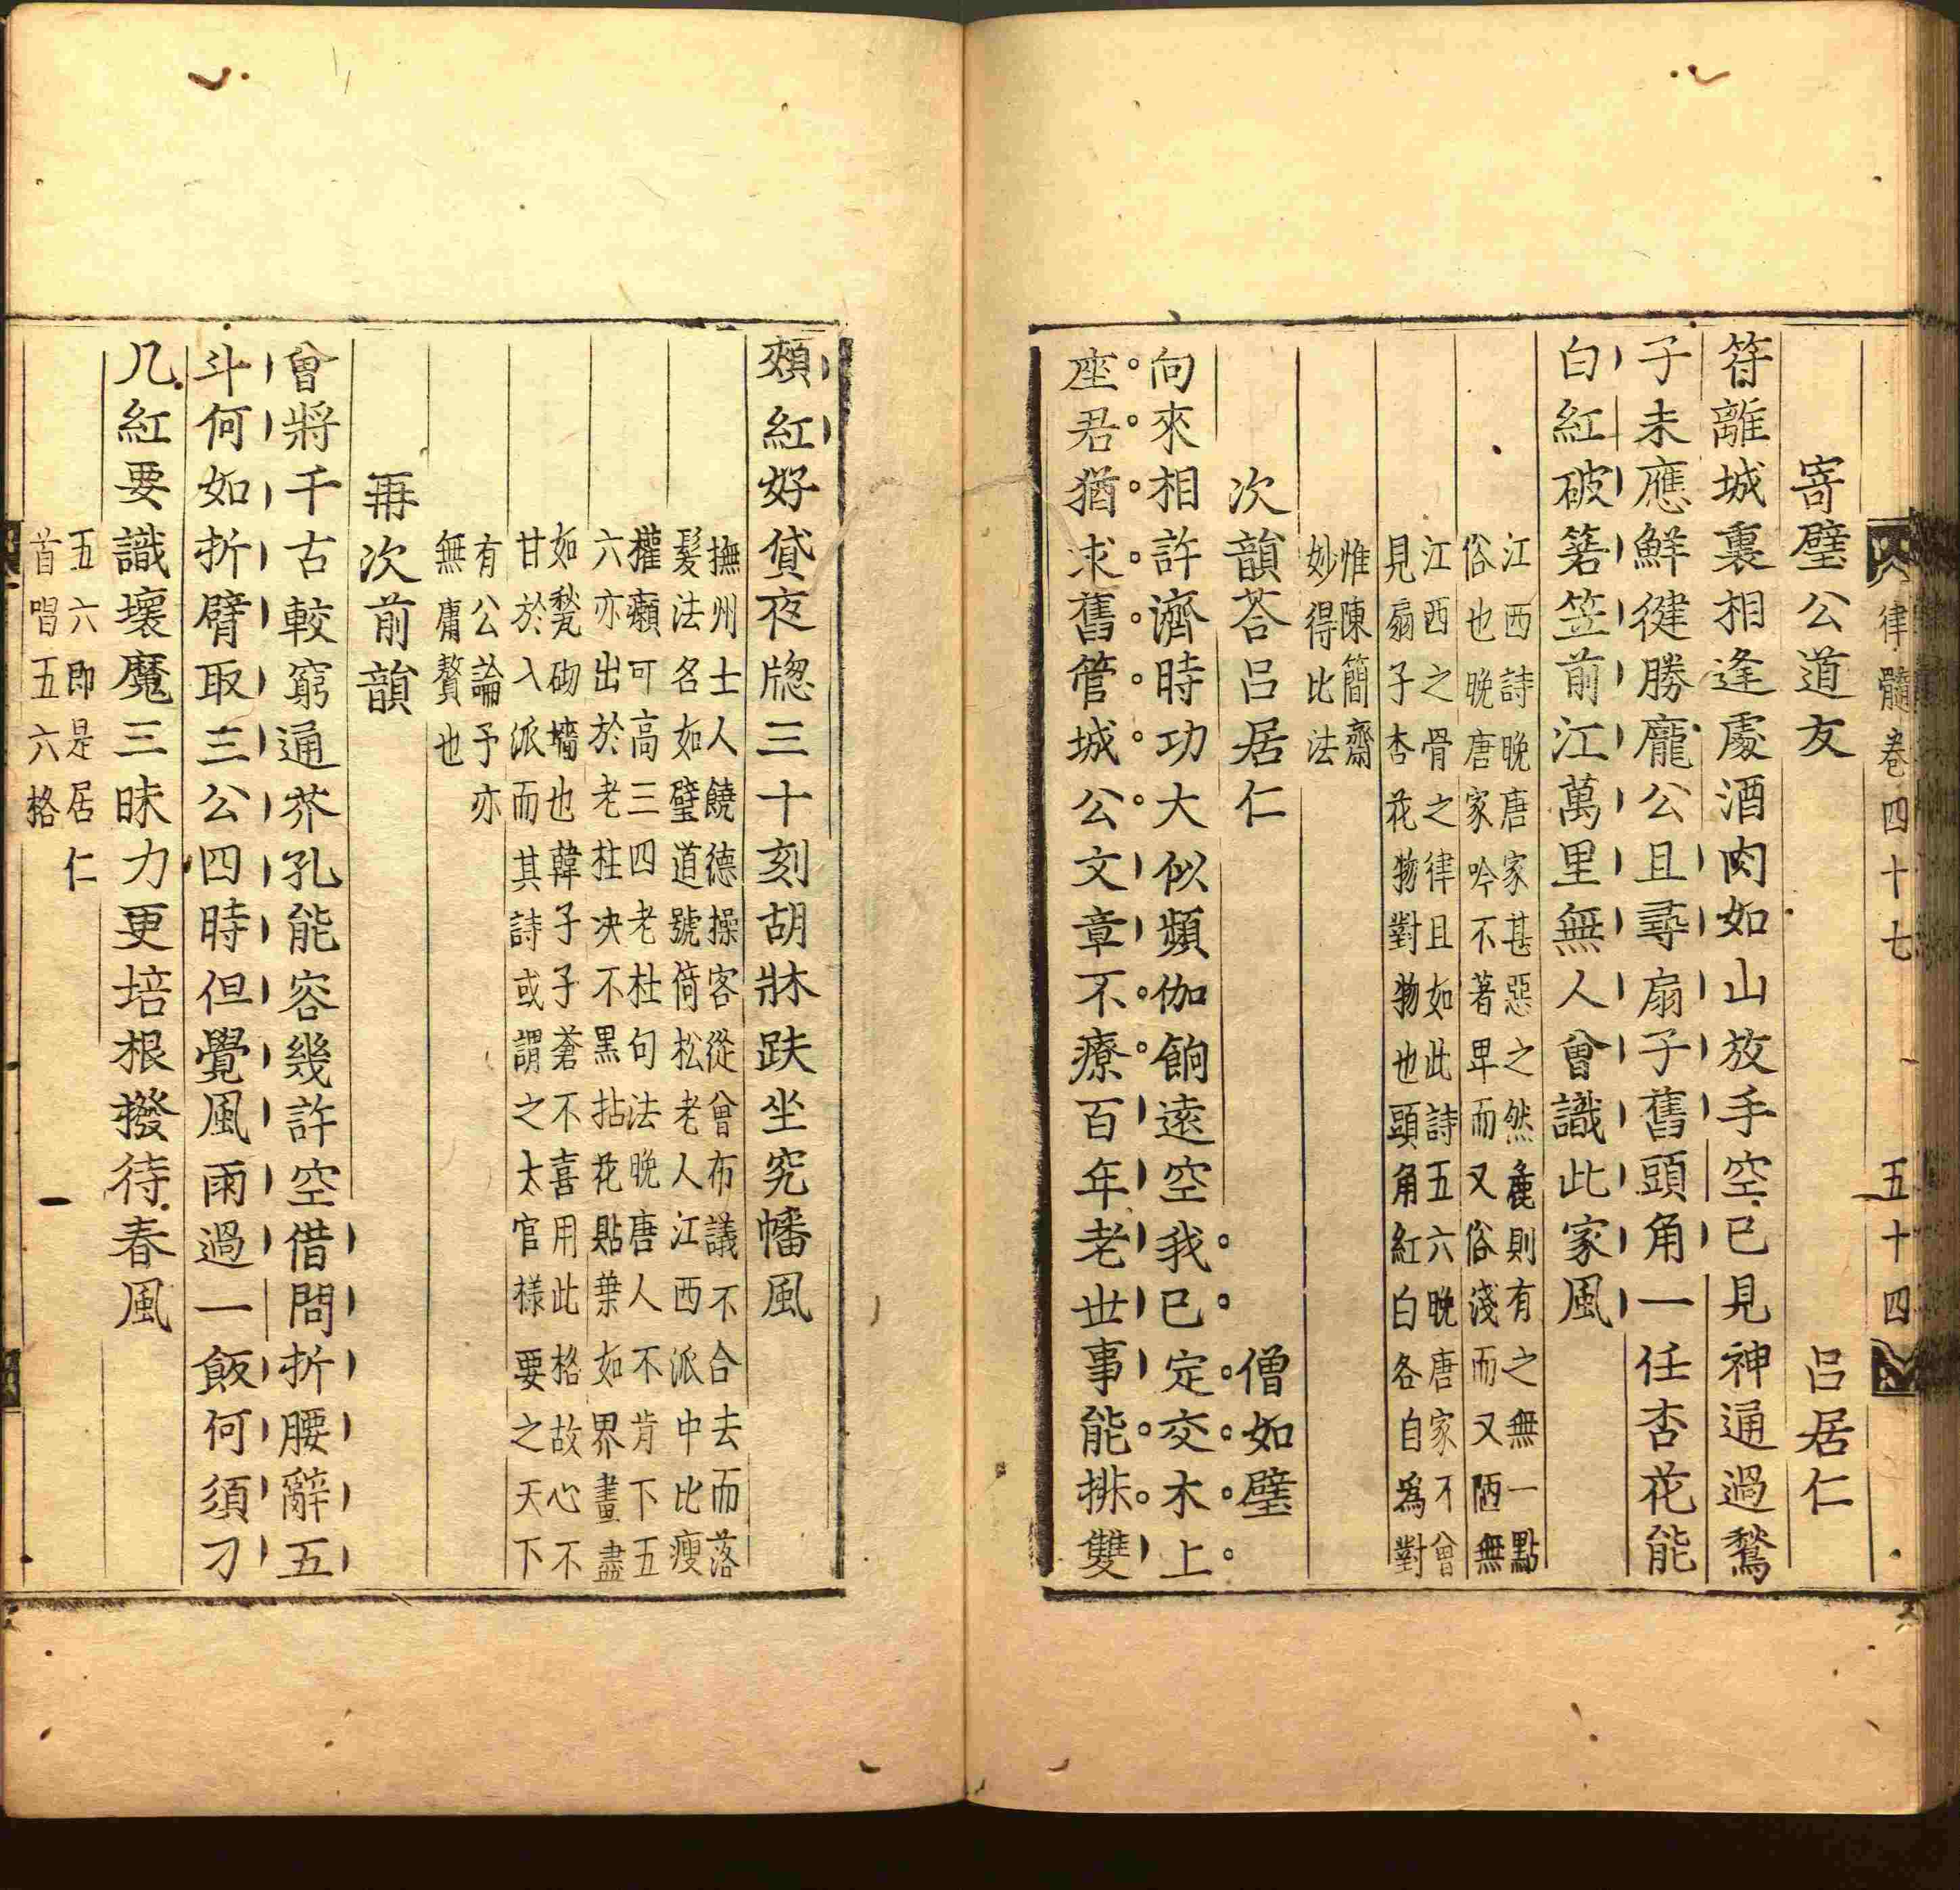 律髓卷四十七
五十四
寄璧公道友　呂居仁
符離城裏相逢處酒肉如山放手空已見神通過鶖
子未應鮮健勝龐公且尋扇子舊頭角一任杏花能
白紅破箬笠前江萬里無人曾識此家風
江西詩晚唐家甚惡之然麄則有之無一點
俗也晚唐家吟不著卑而又俗淺而又陋無
江西之骨之律且如此詩五六晚唐家不曾
見扇子杏花物對物也頭角紅白各自爲對
惟陳簡齋
妙得比法
次韻荅呂居仁　僧如璧
向來相許濟時功大似頻伽餉遠空我已定交木上
座君猶求舊管城公文章不療百年老世事能排雙
頰紅好貸夜牕三十刻胡牀趺坐究幡風
撫州士人饒德操客從曾布議不合去而落
髮法名如璧道號倚松老人江西派中比瘦
權癩可高三四老杜句法晚唐人不肯下五
六亦出於老杜决不黑拈花貼葉如界畫盡
如甃砌墻也韓子子蒼不喜用此格故心不
甘於入派而其詩或謂之太官樣要之天下
有公論予亦
無庸贅也
再次前韻
曾將千古較窮通芥孔能容幾許空借問折腰辭五
斗何如折臂取三公四時但覺風雨過一飯何須刁
几紅要識壞魔三昧力更培根撥待春風
五六即是居仁
首唱五六格